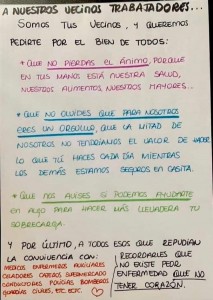 A NUESTROS VECINOS TRABAJADORES...
SOMOS TUS VECINOS, Y QUEREMOS
PEDIRTE POR EL BIEN DE TODOS:
* QUE NO PIERDAS EL ÁNIMO, PORQUE
EN TUS MANOS ESTÁ NUESTRA SALUD,
NUESTROS ALIMENTOS NUESTROS MAYORES...
* QUE NO OLVIDES QUE PARA NOSOTROS
ERES UN ORGULLO, QUE LA MITAD DE
NOSOTROS NO TENDRÍAMOS EL VALOR DE HACER
LO QUE TÚ HACES CADA DÍA MIENTRAS
LOS DEMÁS ESTAMOS SEGUROS EN CASITA.
* QUE NOS AVISES SI PODEMOS AYUDARTE
EN ALGO PARA HACER MÁS LLEVADERA TU
SOBRECARGA.
Y POR ÚLTIMO, A TODOS ESOS QUE REPUDIAN
LA CONVIVENCIA CON:
MEDICOS ENFERMEROS AUXILIARES
CUIDADORES CAJEROS SUPERMERCADO
CONDUCTORES POLICÍAS BOMBEROS
GUARDIAS CIVILES, ETC, ECT.
RECORDARLES QUE
NO EXISTE PEOR
ENFERMEDAD QUE NO
TENER CORAZÓN.